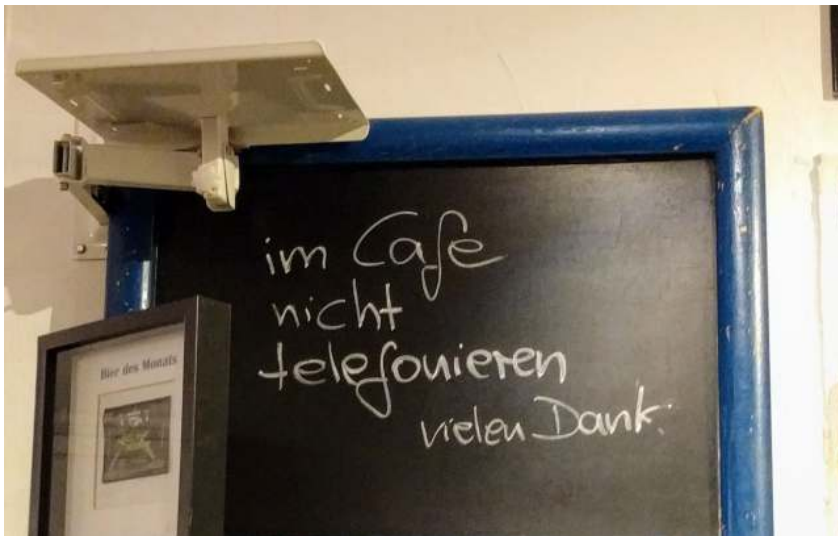 im Cafe
nicht
telefonieren
vielen Dank.
Bier des Monats